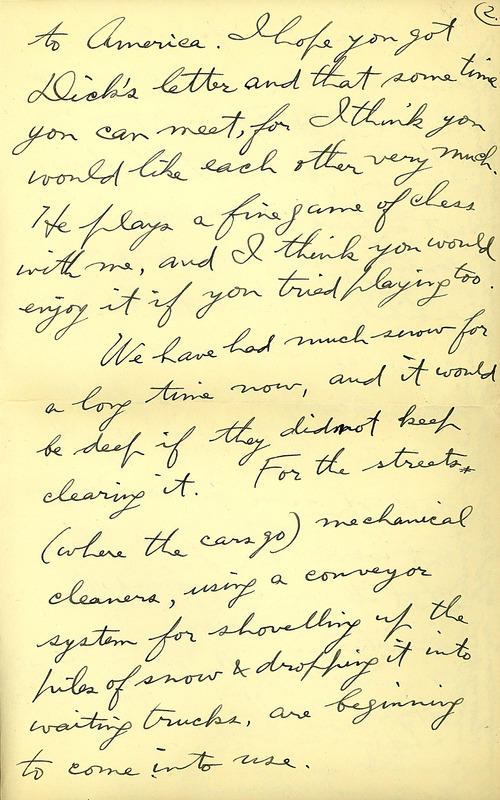 2.
to America. I hope you got
Dick's letter and that some time
you can meet, for I think you
would like each other very much.
He plays a fine game of chess
with me, and I think you would
enjoy it if you tried playing too.
We have had much snow for
a long time now, and it would
be deep if they did not keep
clearing it. For the streets*
(where the cars go) mechanical
cleaners, using a conveyor
system for shovelling up the
piles of snow & dropping it into
waiting trucks, are beginning
to come into use.